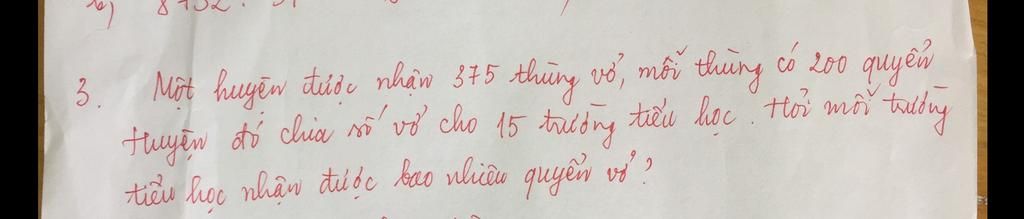 3. Một huyện được nhận 375 thùng vở, mỗi thùng có 200 quyển
Huyện đó chia số vở cho 15 trường tiểu học. Hỏi mỗi trường
tiểu học nhận được bao nhiêu quyển vở?